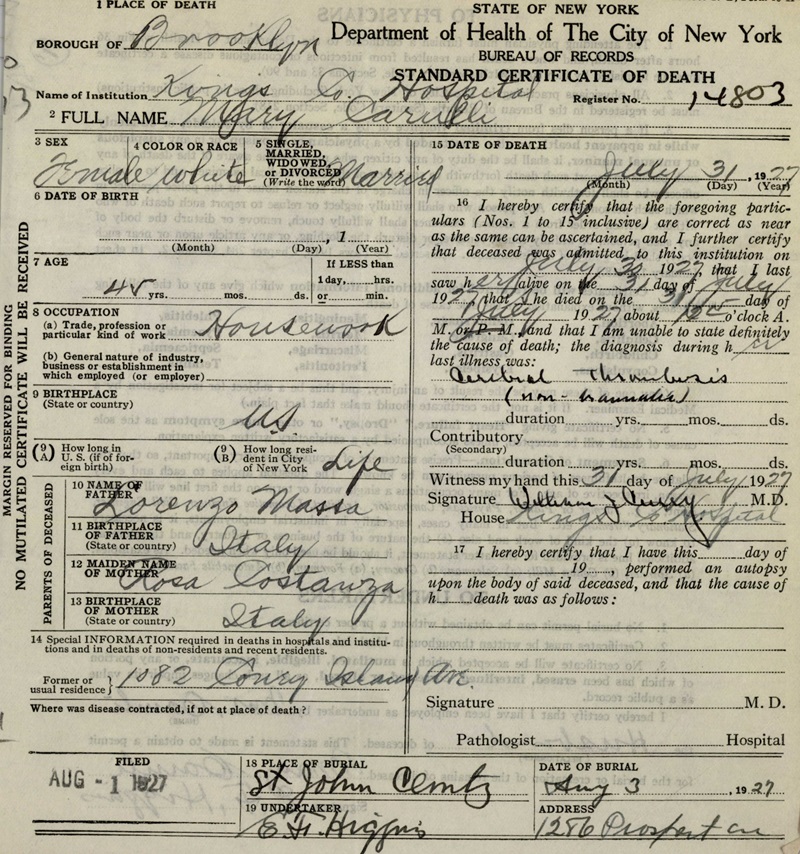 1 PLACE OF DEATH
STATE OF NEW YORK
BOROUGH OF Brooklyn
Department of Health of The City of New York
BUREAU OF RECORDS
STANDARD CERTIFICATE OF DEATH
Name of Institution Kings Co. Hospital
Register No. 14803
2 FULL NAME Mary Carulli
3 SEX Female
4 COLOR OR RACE White
5 SINGLE, MARRIED, WIDOWED, OR DIVORCED (Write the word) Married
6 DATE OF BIRTH
, 1
(Month) (Day) (Year)
7 AGE
45 yrs. mos. ds.
If LESS than
1 day, hrs.
or min.
8 OCCUPATION
(a) Trade, profession or
particular kind of work Housework
(b) General nature of industry,
business or establishment in
which employed (or employer)
9 BIRTHPLACE
(State or country) US
(9 A) How long in U. S. (if of foreign birth)
(9 B) How long resident in City of New York Life
PARENTS OF DECEASED
10 NAME OF FATHER Lorenzo Massa
11 BIRTHPLACE OF FATHER
(State or country) Italy
12 MAIDEN NAME OF MOTHER Rosa Costanza
13 BIRTHPLACE OF MOTHER
(State or country) Italy
14 Special INFORMATION required in deaths in hospitals and institu-
tions and in deaths of non-residents and recent residents.
Former or usual residence } 1082 Coney Island Ave
Where was disease contracted, if not at place of death ?
15 DATE OF DEATH
July 31, 1927
(Month) (Day) (Year)
16 I hereby certify that the foregoing partic-
ulars (Nos. 1 to 15 inclusive) are correct as near
as the same can be ascertained, and I further certify
that deceased was admitted to this institution on
July 1927, that I last
saw her alive on the 31 day of July
1927, that she died on the 31 day of
July 1927 about o'clock A.
M. or P. M., and that I am unable to state definitely
the cause of death; the diagnosis during her
last illness was:
Cerebral Thrombosis
(non-traumatic)
duration yrs. mos. ds.
Contributory
(Secondary)
duration yrs. mos. ds.
Witness my hand this 31 day of July 1927
Signature William J. M.D.
House Kings Co Hospital
17 I hereby certify that I have this day of
19 , performed an autopsy
upon the body of said deceased, and that the cause of
h death was as follows :
Signature M. D.
Pathologist Hospital
FILED
AUG - 1 1927
18 PLACE OF BURIAL
St John Cemty
DATE OF BURIAL
Aug 3, 1927
19 UNDERTAKER
E. F. Higgins
ADDRESS
1286 Prospect av
MARGIN RESERVED FOR BINDING
NO MUTILATED CERTIFICATE WILL BE RECEIVED